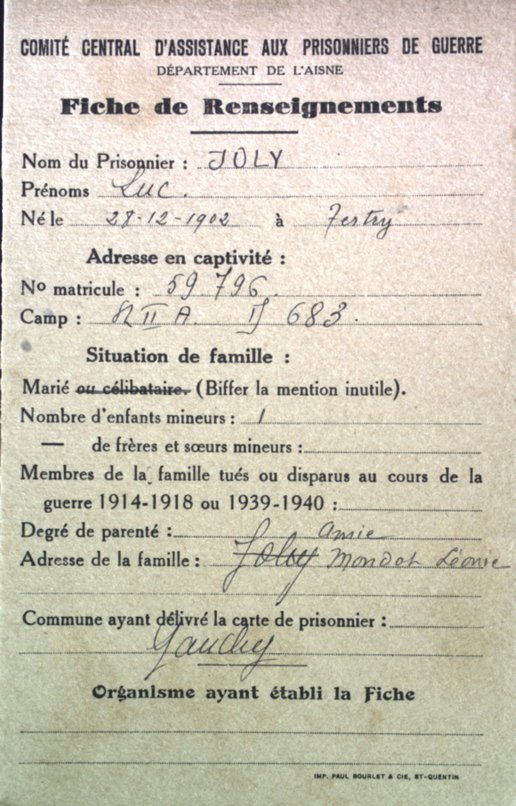 COMITÉ CENTRAL D'ASSISTANCE AUX PRISONNIERS DE GUERRE
DÉPARTEMENT DE L'AISNE
Fiche de Renseignements
Nom du Prisonnier : JOLY
Prénoms Luc.
Né le 28-12-1902 à Tertry
Adresse en captivité :
No matricule : 59.796.
Camp : II A. 683.
Situation de famille :
Marié ou célibataire. (Biffer la mention inutile).
Nombre d'enfants mineurs : 1
— de frères et sœurs mineurs :
Membres de la famille tués ou disparus au cours de la
guerre 1914-1918 ou 1939-1940 :
Degré de parenté : amie
Adresse de la famille : Joly Mondot Léonie
Commune ayant délivré la carte de prisonnier :
Gauchy
Organisme ayant établi la Fiche
IMP. PAUL BOURLET & CIE, ST-QUENTIN